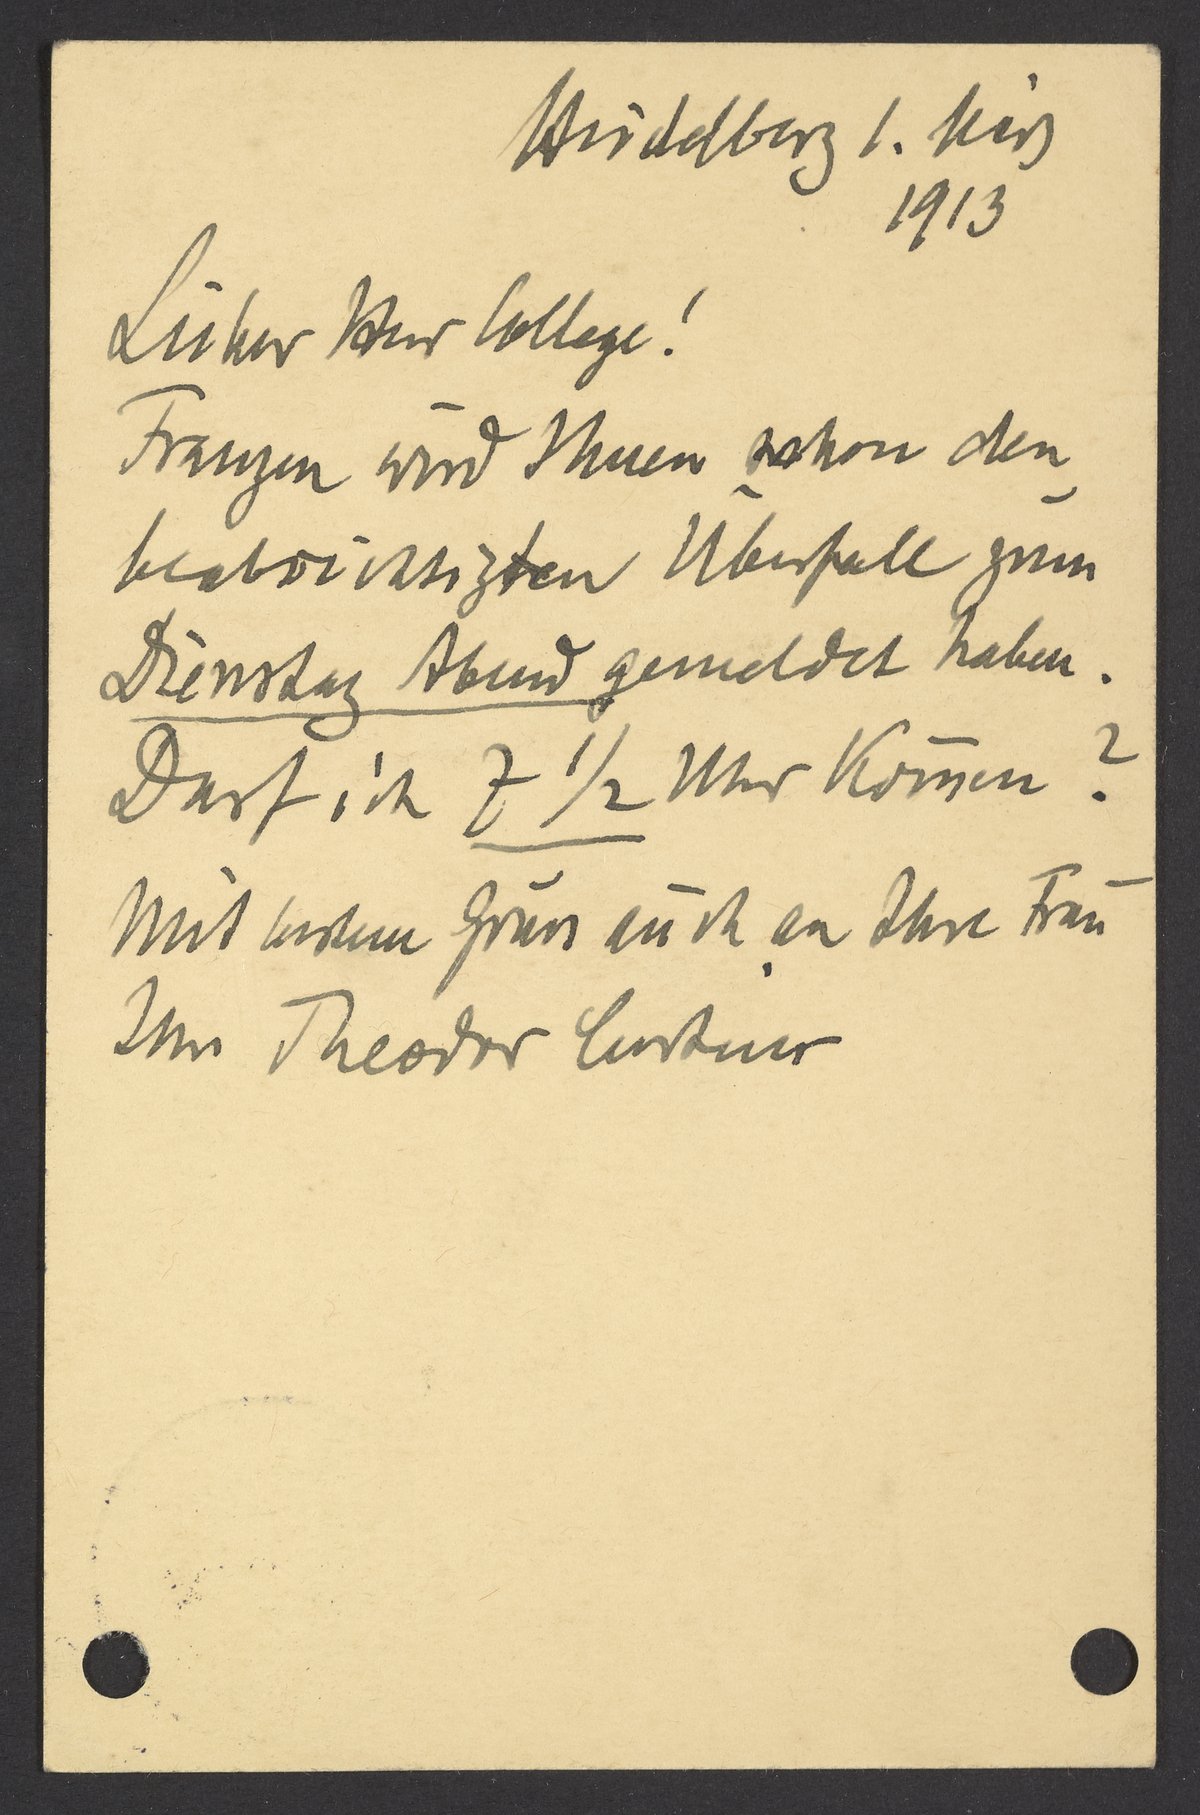 Heidelberg 1. März
1913
Lieber Herr College!
Franzen wird Ihnen schon den
beabsichtigten Überfall zum
Dienstag Abend gemeldet haben.
Darf ich 7 1/2 Uhr kommen?
Mit bestem Gruss auch an Ihre Frau
Ihr Theodor